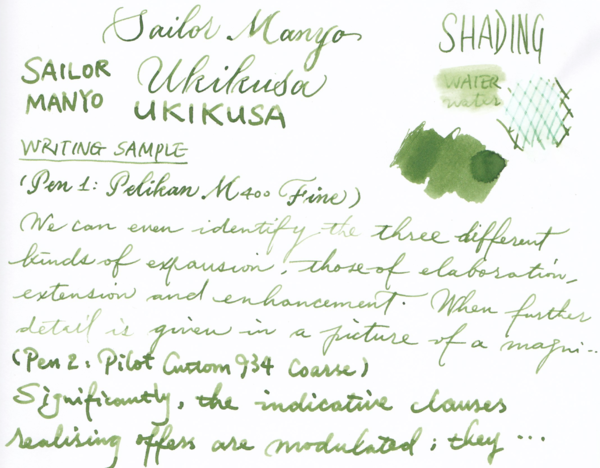 Sailor Manyo
SHADING
SAILOR
MANYO
Ukikusa
UKIKUSA
WATER
water
WRITING SAMPLE
(Pen 1: Pelikan M400 Fine)
We can even identify the three different
kinds of expansion, those of elaboration,
extension and enhancement. When further
detail is given in a picture of a magni...
(Pen 2: Pilot Custom 934 Coarse)
Significantly, the indicative clauses
realising offers are modulated; they ...